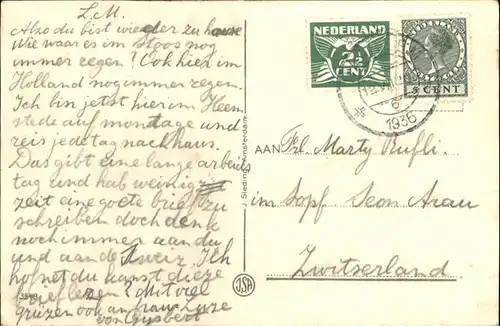 L.M.
Alzo du bist wieder zu hause
Wie waar es im Sloos nog
immer regen? Ook hier im
Holland nog immer regen.
Ich bin jetst hier im Heem
stede auf montage und
reis jede tag nach haus.
Das gibt eine lange arbeits
tag und hab weinig
zeit eine goete brief zu
schreiben doch denk
noch immer aan du
und aan de Sweiz. Ich
hof net du kanst dieze
brief lezen? Mit viel
gruzen ook an frau Luze
von Gijsbert
NEDERLAND
2½
CENT
NEDERLAND
5 CENT
6
1936
AAN Frl. Marty Rufli.
im Dopf Seon Arau
Zwitserland
J. Sleding, Amsterdam
JSA